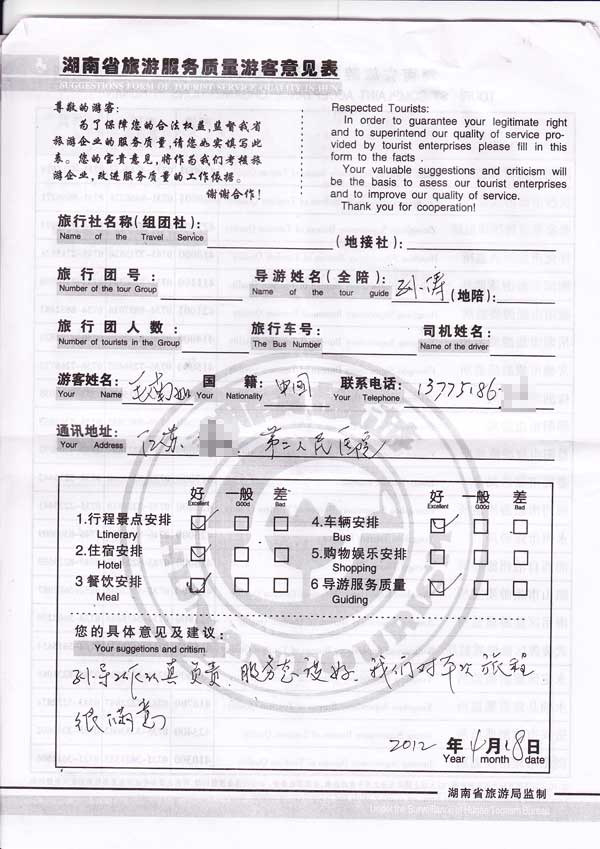 湖南省旅游服务质量游客意见表
SUGGESTIONS FORM OF TOURIST SERVICE QUALITY IN HUN
尊敬的游客:
为了保障您的合法权益,监督我省
旅游企业的服务质量,请您如实填写此
表。您的宝贵意见,将作为我们考核旅
游企业,改进服务质量的工作依据。
谢谢合作!
Respected Tourists:
In order to guarantee your legitimate right
and to superintend our quality of service pro-
vided by tourist enterprises please fill in this
form to the facts .
Your valuable suggestions and criticism will
be the basis to asess our tourist enterprises
and to improve our quality of service.
Thank you for cooperation!
旅行社名称(组团社): (地接社):
Name of the Travel Service
旅行团号: 导游姓名(全陪): 孙伟 (地陪)
Number of the tour Group Name of the tour guide
旅行团人数: 旅行车号: 司机姓名:
Number of tourists in the Group The Bus Number Name of the driver
游客姓名: 王南 国籍: 中国 联系电话: 13775186
Your Name Your Nationality Your Telephone
通讯地址: 江苏 第二人民医院
Your Address
好 一般 差 好 一般 差
Excellent G00d Bad Excellent G00d Bad
1.行程景点安排 4.车辆安排
Ltinerary Bus
2.住宿安排 5.购物娱乐安排
Hotel Shopping
3 餐饮安排 6 导游服务质量
Meal Guiding
您的具体意见及建议:
Your suggtions and critism
孙导游认真负责、服务态度好、我们对本次旅程
很满意
2012 年 4 月 18 日
Year month date
湖南省旅游局监制
Under the Surveillance of Hunan Tourism Bureau